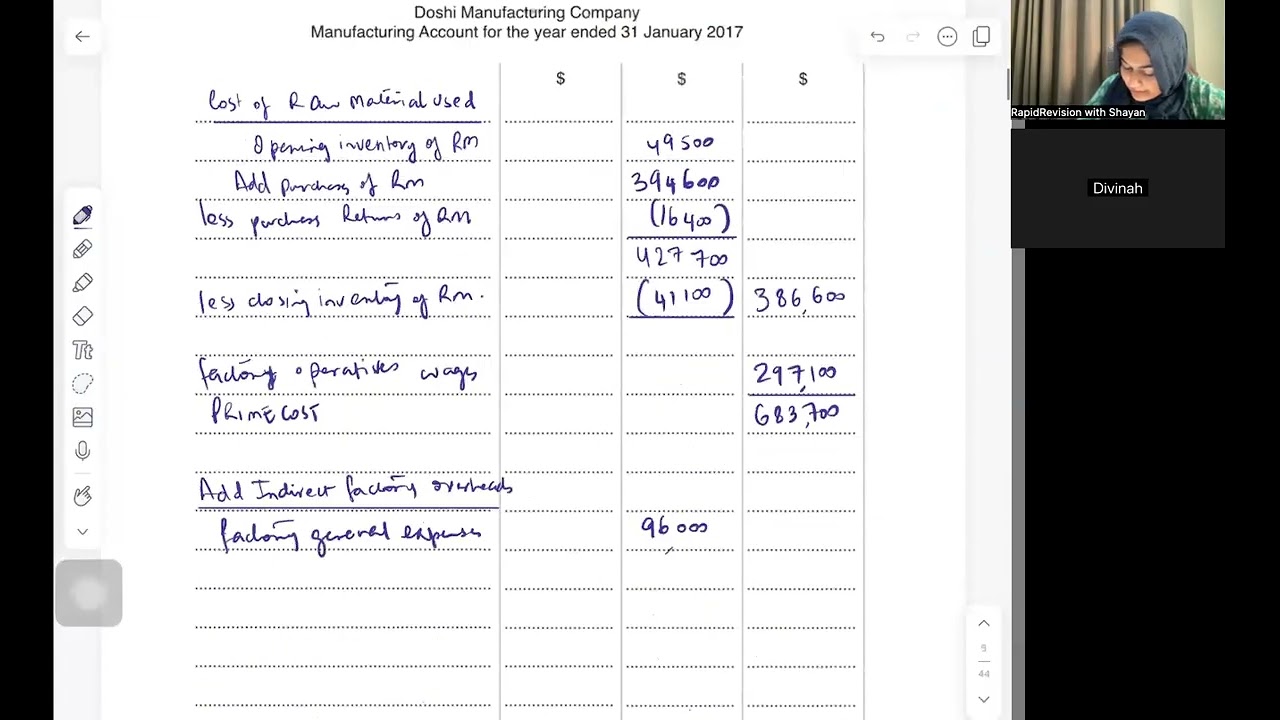 Doshi Manufacturing Company
Manufacturing Account for the year ended 31 January 2017
$ $ $
Cost of Raw Material Used
Opening inventory of RM 49500
Add purchases of RM 394600
less purchases Returns of RM (16400)
427700
less closing inventory of Rm. (41100) 386,600
factory operatives wages 297,100
PRIME COST 683,700
Add Indirect factory overheads
factory general expenses 96000
Tt
9
44
RapidRevision with Shayan
Divinah